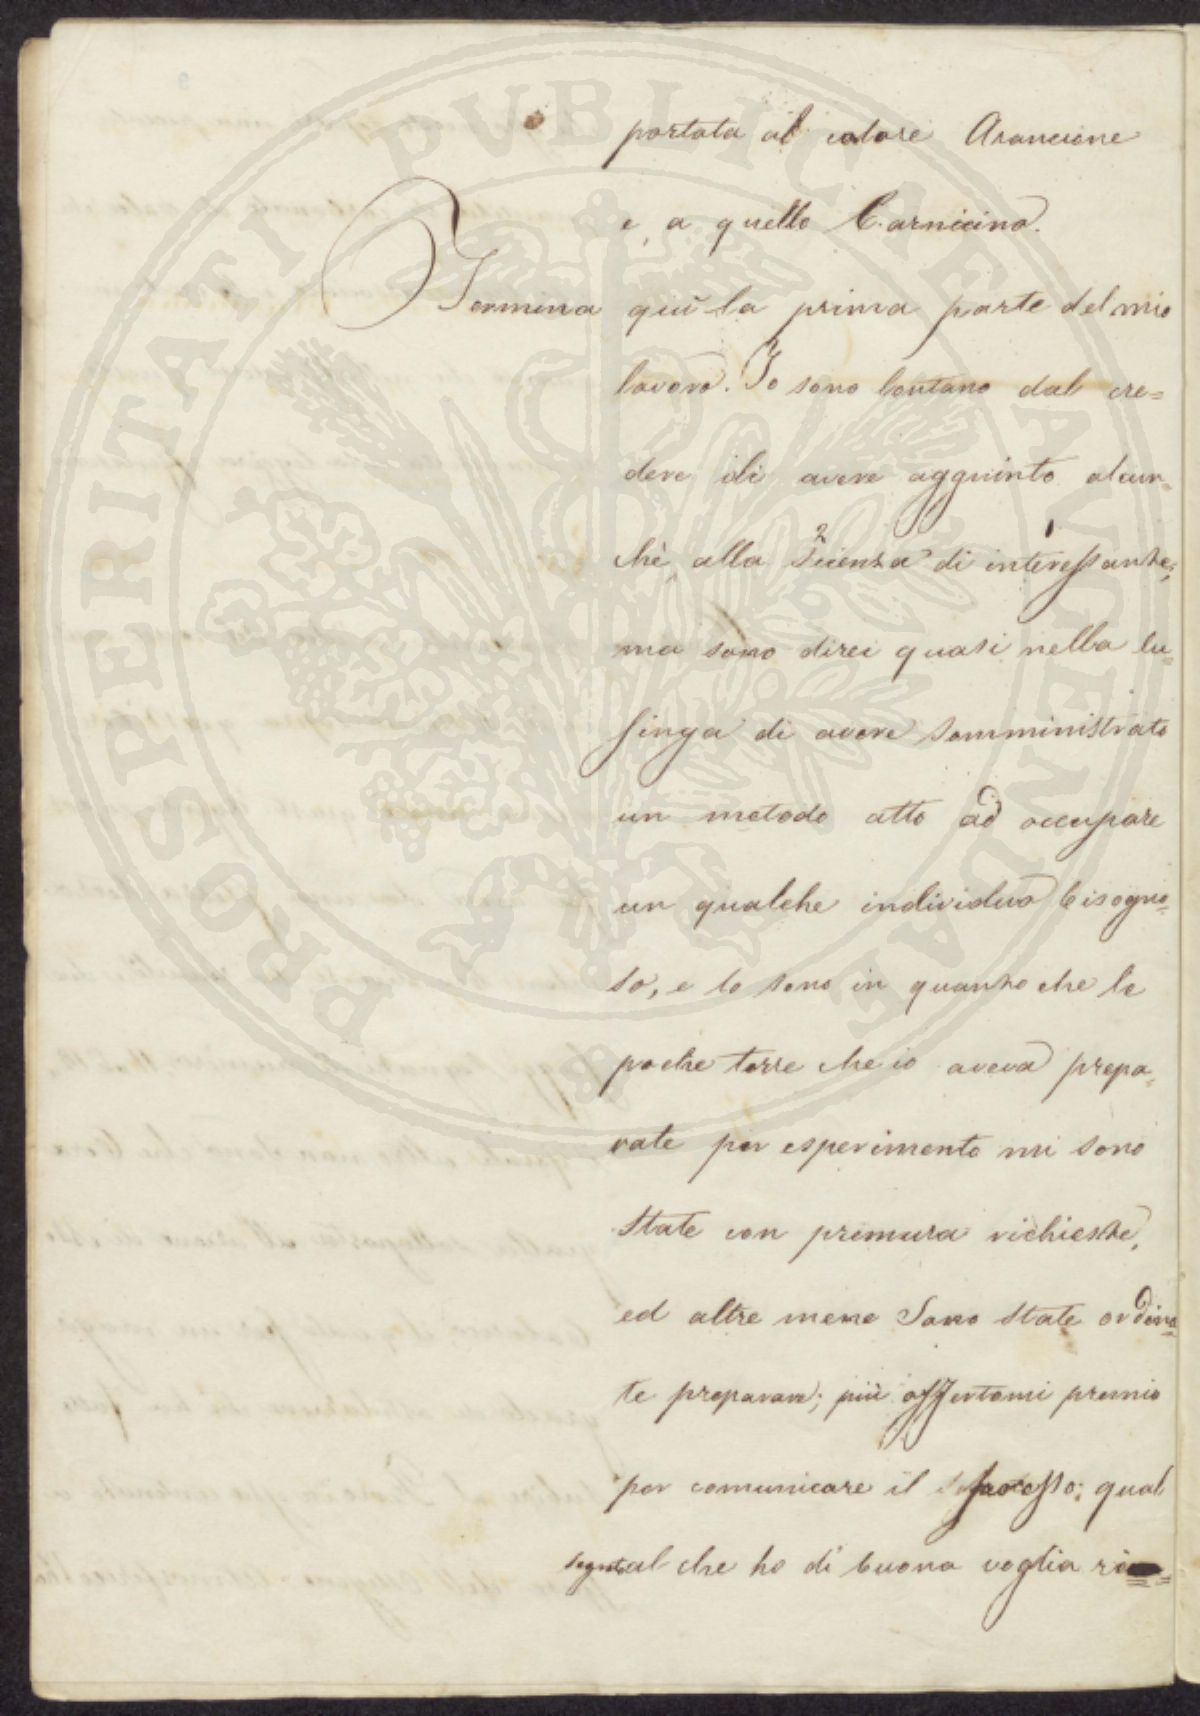 portata al colore Arancione
e, a quello Carnicino.
Termina quì la prima parte del mio
lavoro. Io sono lontano dal cre=
dere di avere aggiunto alcun=
chè alla Scienza di interessante;
ma sono direi quasi nella lu=
singa di avere somministrato
un metodo atto ad occupare
un qualche individuo bisogno=
so, e lo sono in quanto che le
poche terre che io aveva prepa=
rate per esperimento mi sono
state con premura richieste,
ed altre mene sono state ordina=
te preparare; più offertomi premio
per comunicare il processo; qual
segnal che ho di buona voglia
PROSPERITATI PVBLICAE AVGENDAE